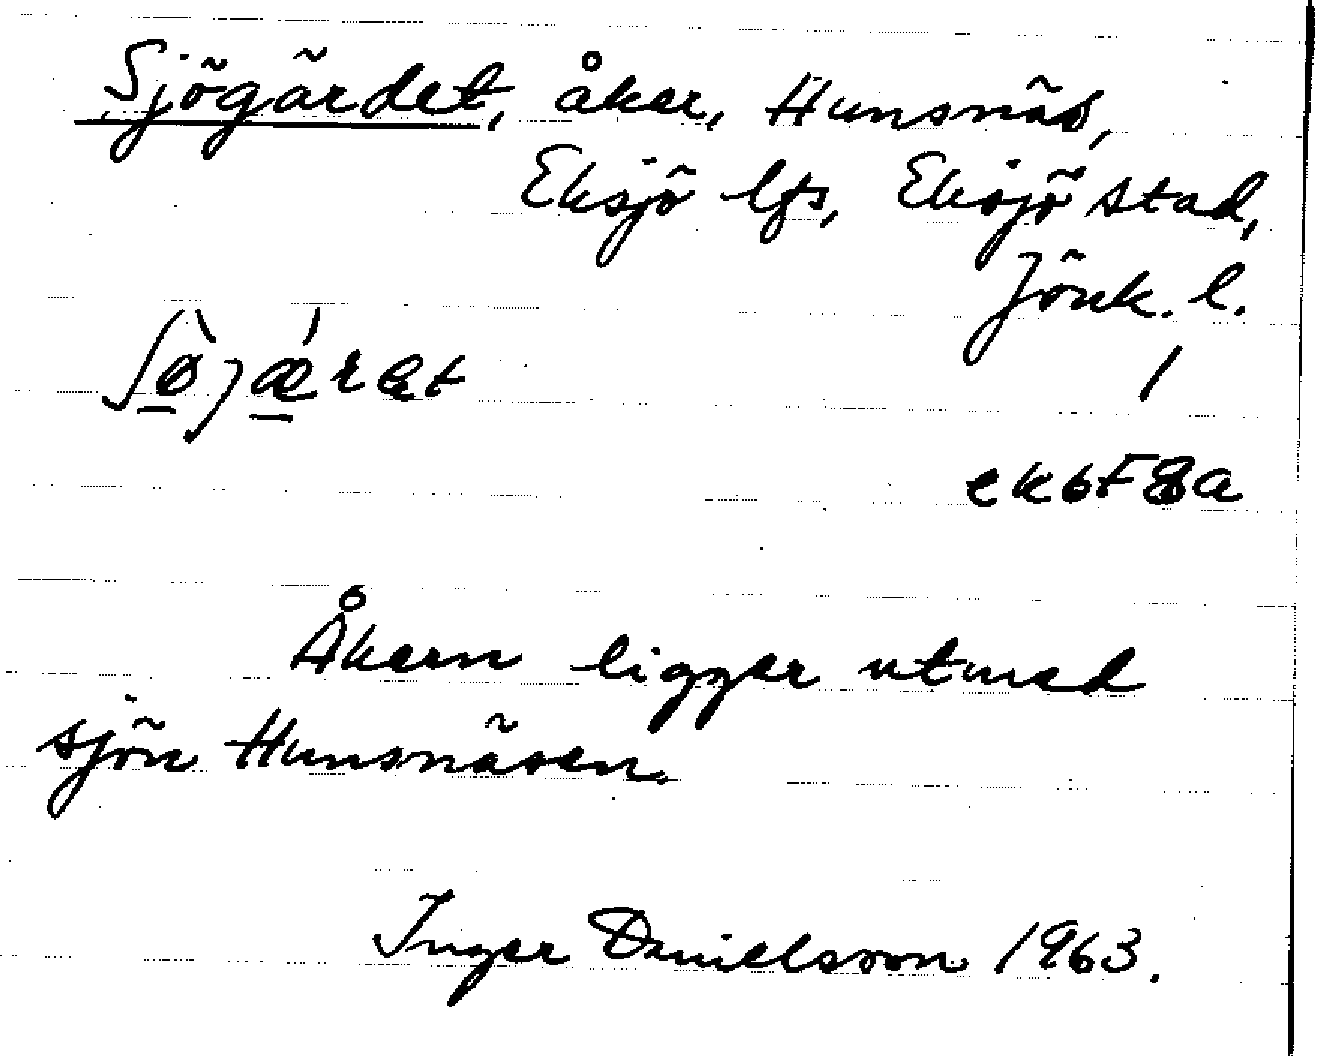 Sjögärdet, åker, Hunsnäs,
Eksjö lfs, Eksjö stad,
Jönk. l.
ʃø̠̀jǽ̠ret
1
ek6F8a
Åkern ligger utmed
sjön Hunsnäsen.
Inger Danielsson 1963.